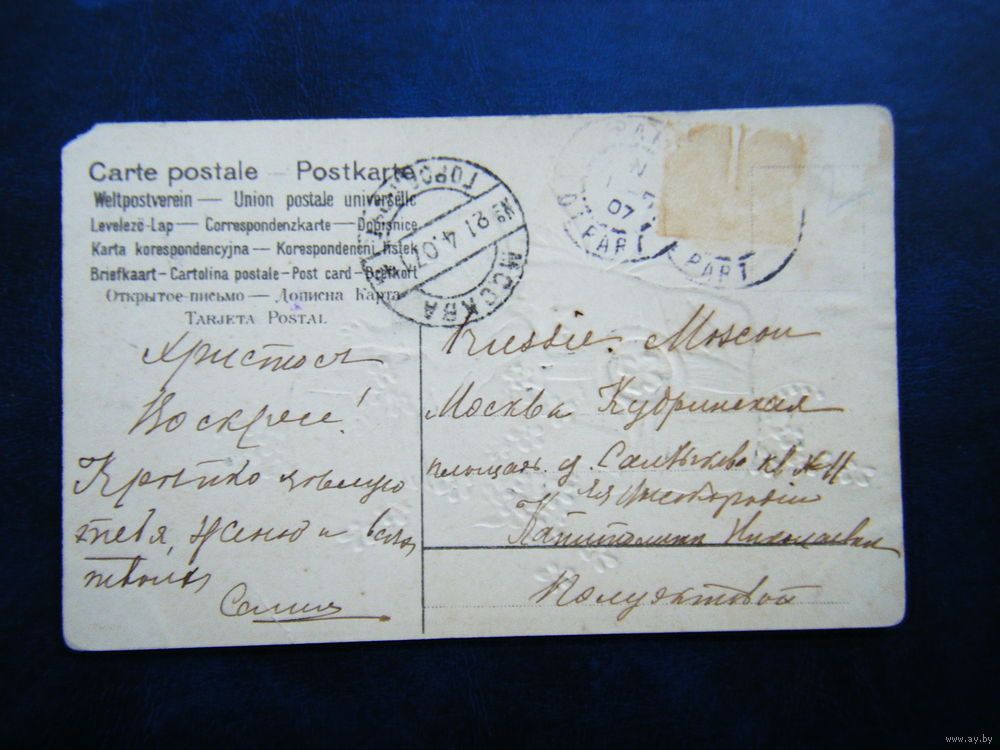 Carte postale — Postkarte
Weltpostverein — Union postale universelle
Levelező-Lap — Correspondenzkarte — Dopisnice
Karta korespondencyjna — Korespondenční lístek
Briefkaart – Cartolina postale – Post card – Brefkort
Открытое письмо — Дописна Карта
Tarjeta Postal
МОСКВА
21.4.07
07
DÉPART
DÉPART
Христосъ
Воскресе!
Крѣпко цѣлую
тебя, Женю и всѣхъ
твоихъ
Russie. Moscou
Москва Кудринская
площадь д. кв № 11
Николаевнѣ
Полуектовой
www.ay.by